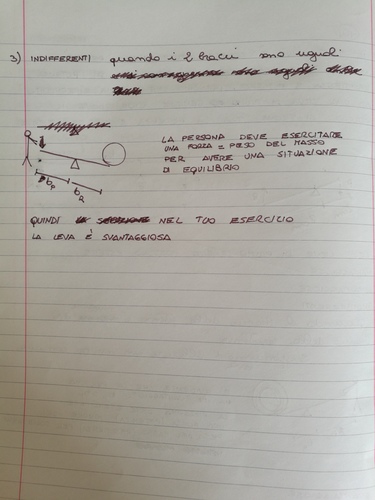 3) INDIFFERENTI quando i 2 bracci sono uguali
LA PERSONA DEVE ESERCITARE
UNA FORZA = PESO DEL MASSO
PER AVERE UNA SITUAZIONE
DI EQUILIBRIO
bP
bR
QUINDI NEL TUO ESERCIZIO
LA LEVA È SVANTAGGIOSA